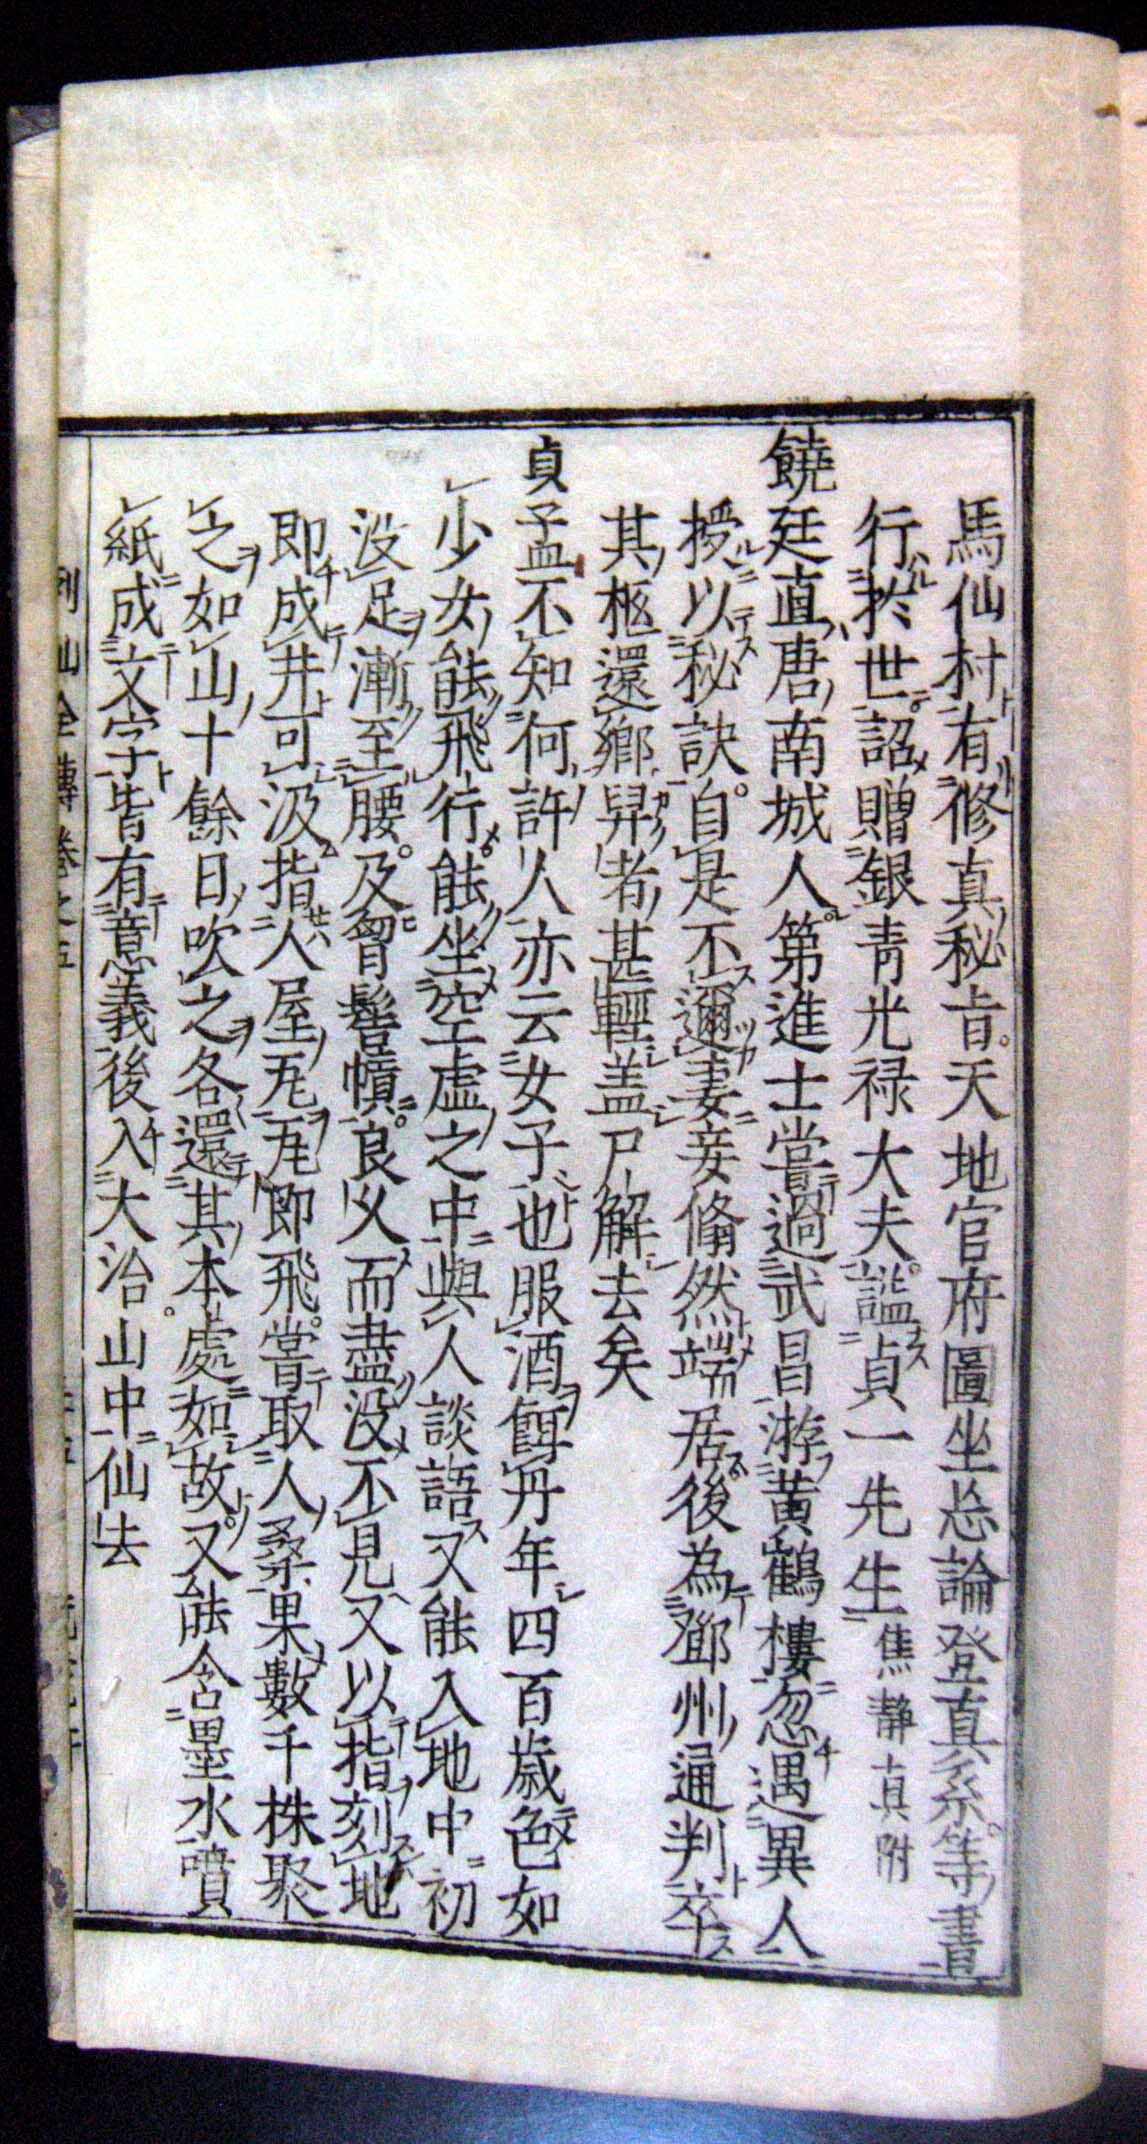 馬仙村有修真秘旨天地官府圖坐忘論登真系等書
行於世詔贈銀青光禄大夫諡貞一先生焦静真附
饒廷直唐南城人第進士嘗過武昌游黄鶴樓忽遇異人
授以秘訣自是不邇妻妾翛然端居後為鄧州通判卒
其柩還鄉舁者甚輕盖尸解去矣
貞孟不知何許人亦云女子也服酒餌丹年四百歳色如
少女能飛行能坐空虚之中與人談語又能入地中初
没足漸至腰及胷髻幘良乆而盡没不見又以指刻地
即成井可汲指人屋瓦瓦即飛嘗取人桑果數千株聚
之如山十餘日吹之各還其本處如故又能含墨水噴
紙成文字皆有意義後入大治山中仙去
列仙全傳卷之五